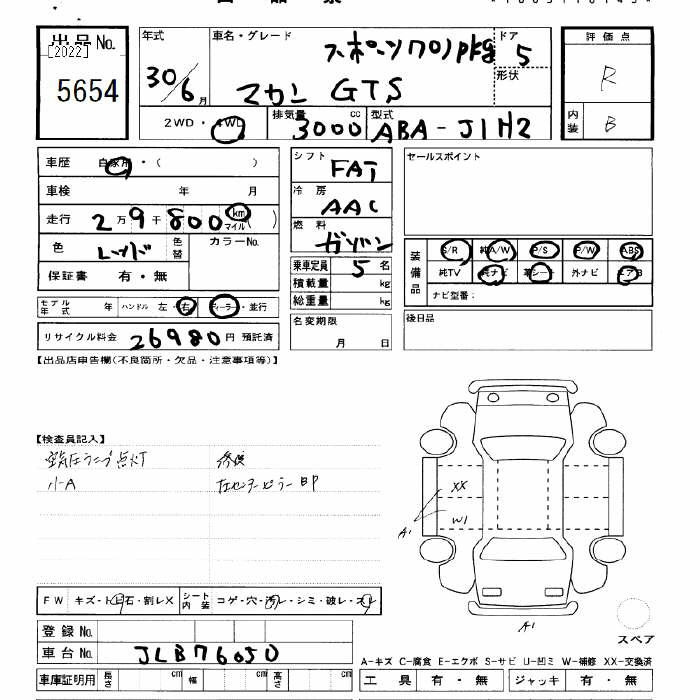 出品No.
[2022]
5654
年式
30/6月
車名・グレード
スポーツクロノpkg
マカン GTS
ドア
5
形状
評価点
R
内装
B
2WD・4WD
排気量
3000cc
型式
ABA-J1H2
車歴 自家用・( )
車検 年 月
走行 2万9千800 km マイル( )
色 レッド 色替 カラーNo.
保証書 有・無
モデル年式 年 ハンドル 左・右 ディーラー・並行
リサイクル料金 26980円 預託済
シフト FAT
冷房 AAC
燃料 ガソリン
乗車定員 5名
積載量 kg
総重量 kg
名変期限
月 日
セールスポイント
装備品
S/R 純A/W P/S P/W ABS
純TV 純ナビ 革シート 外ナビ エアB
ナビ型番:
後日品
【出品店申告欄(不良箇所・欠品・注意事項等)】
【検査員記入】
空気圧ランプ点灯
小A
修復
左センターピラー凹
XX
W1
A1
A1
スペア
FW キズ・トビ石・割レX シート内装 コゲ・穴・汚レ・シミ・破レ・スレ
登録No.
車台No. JLB76050
車庫証明用 長さ cm 幅 cm 高さ cm
A-キズ C-腐食 E-エクボ S-サビ U-凹ミ W-補修 XX-交換済
工具 有・無 ジャッキ 有・無